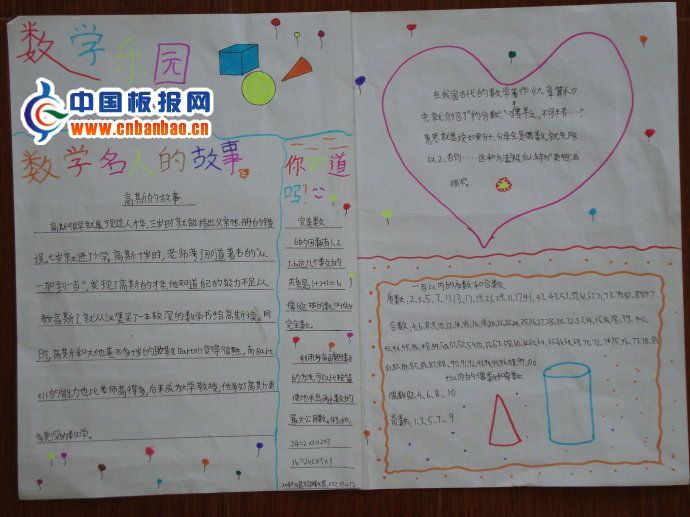 数学乐园
中国板报网
www.cnbanbao.cn
数学名人的故事
高斯的故事
高斯很早就展现过人才华,三岁时就能指出父亲帐册的错
误。七岁就进了小学,高斯十岁时,老师考了那道著名的"从
一加到一百",发现了高斯的才华,他知道自己的能力不足以
教高斯了,就从汉堡买了一本较深的数学书给高斯读。同
时,高斯和大他差不多十岁的助教Bartoli变得很熟,而Bart
els的能力也比老师高得多,后来成为大学教授,他教了高斯更
多更深的数学。
你知道
吗!
完美数
6的因数有1、2、
3、6,这几个因数的
关系是:1+2+3=6
像6这样的数,叫做
完全数。
利用分解质因数
的方法,可以比较简
便地求出两个数的
最大公因数。
24=2×2×2×3
16=2×2×3×3
在我国古代的数学著作《九章算术》
中,就介绍了"约分数"
意思就是说:如果分子、分母全是偶数,就先除
以2;否则……这种方法被后人称为更相减
损术。
一百以内的质数和合数
质数:2、3、5、7、11、13、17、19、23、29、31、37、41、43、47、53、59、61、67、71、73、79、83、89、97
合数:4、6、8、9、10、12、14、15、16、18、20、21、22、24、25、26、27、28、30、32、33、34、35、36、38、39、40、
81、82、84、85、86、87、88、90、91、92、93、94、95、96、98、99、100
十以内的偶数和奇数
偶数:2、4、6、8、10
奇数:1、3、5、7、9